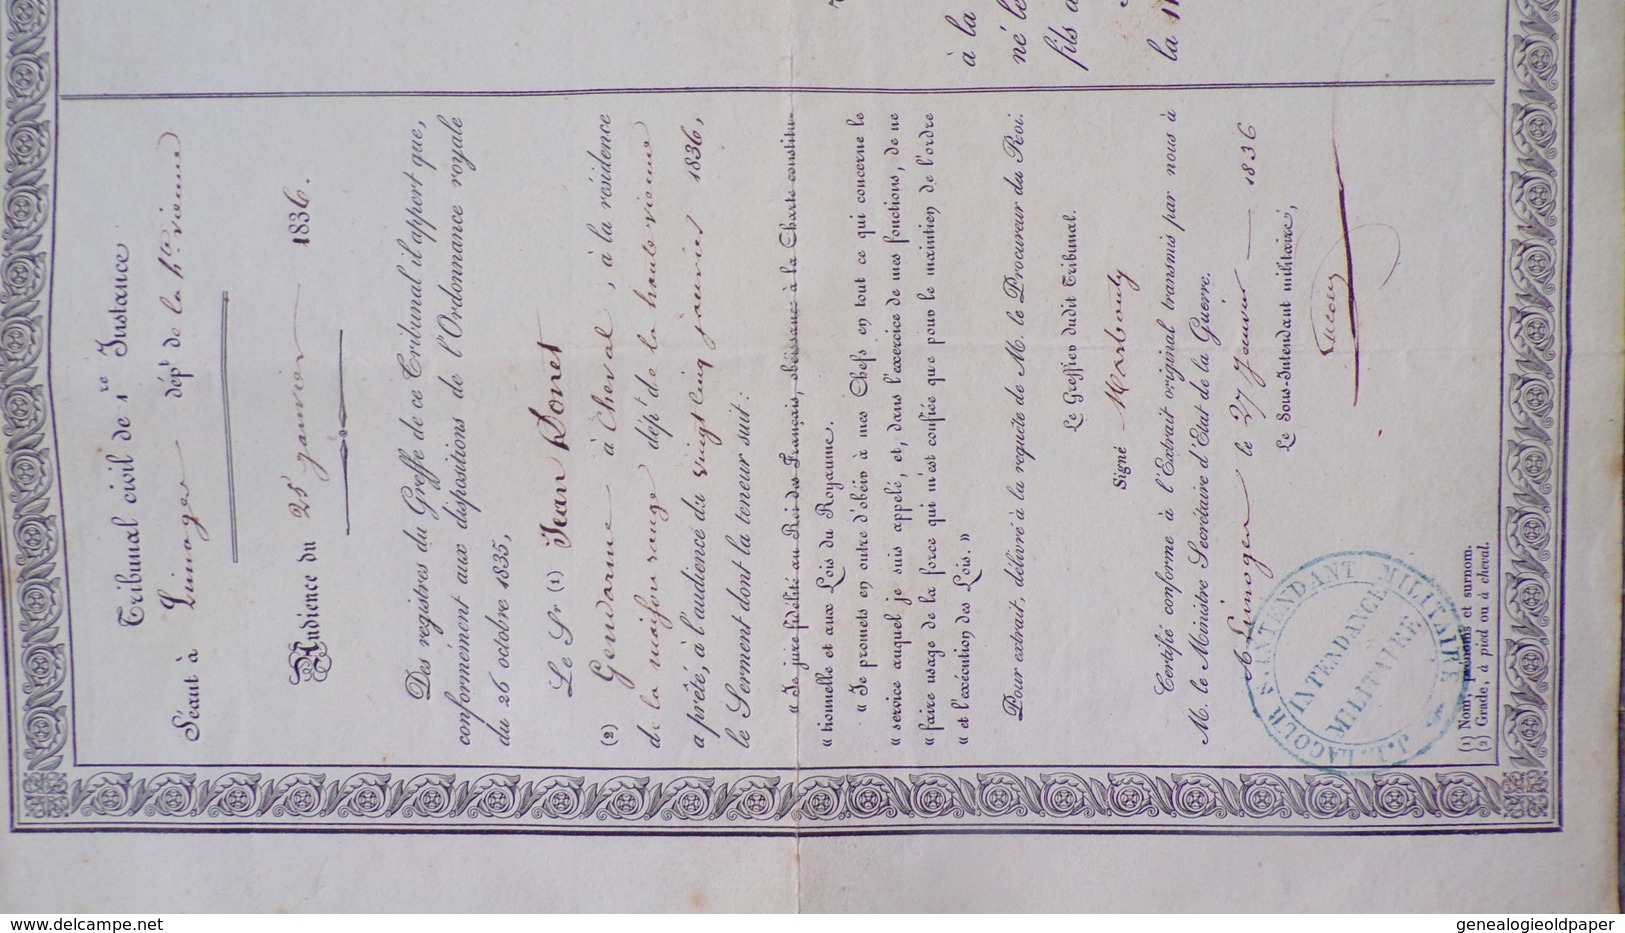 Tribunal civil de 1re Instance
Séant à Limoges dépt de la hte vienne
Audience du 25 janvier 1836.
Des registres du Greffe de ce Tribunal il appert que,
conformément aux dispositions de l'Ordonnance royale
du 26 octobre 1835,
Le Sr (1) Jean Donet
(2) Gendarme à Cheval, à la résidence
de la maison rouge dépt de la haute vienne
a prêté, à l'audience du vingt cinq janvier 1836,
le Serment dont la teneur suit:
« Je jure fidélité au Roi des Français, obéissance à la Charte constitu-
« tionnelle et aux Lois du Royaume.
« Je promets en outre d'obéir à mes Chefs en tout ce qui concerne le
« service auquel je suis appelé, et, dans l'exercice de mes fonctions, de ne
« faire usage de la force qui m'est confiée que pour le maintien de l'ordre
« et l'exécution des Lois. »
Pour extrait, délivré à la requête de M. le Procureur du Roi.
Le Greffier dudit Tribunal.
Signé Marbouty
Certifié conforme à l'Extrait original transmis par nous à
M. le Ministre Secrétaire d'État de la Guerre.
A Limoges le 27 Janvier 1836
Le Sous-Intendant militaire,
J.J. LACOUR S. INTENDANT MILITAIRE
INTENDANCE
MILITAIRE
(1) Nom, prénoms et surnom.
(2) Grade, à pied ou à cheval.
à la
né le
fils d
la
delcampe.net
genealogieoldpaper